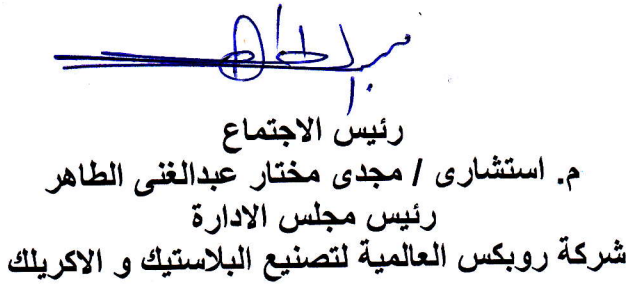 رئيس الاجتماع
م. استشارى / مجدى مختار عبدالغنى الطاهر
رئيس مجلس الادارة
شركة روبكس العالمية لتصنيع البلاستيك و الاكريلك